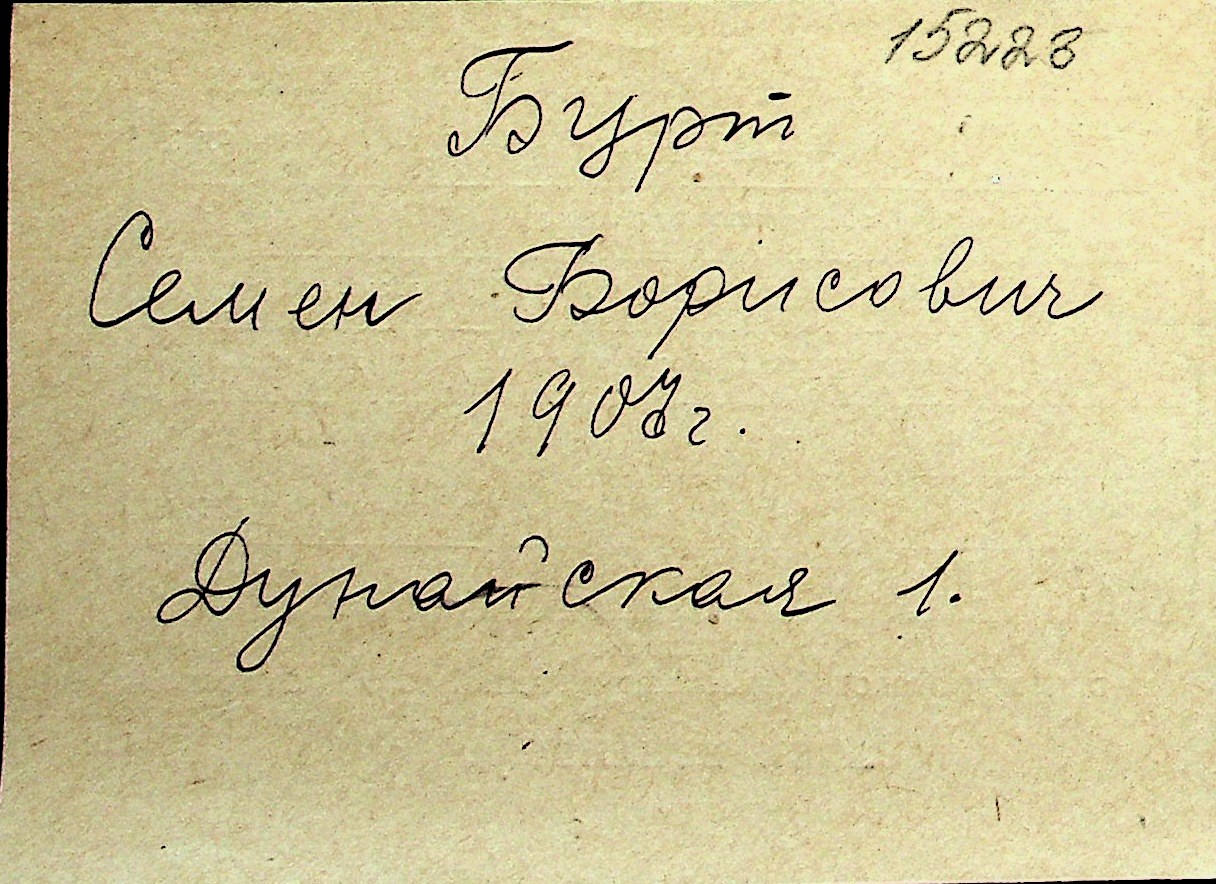 15228
Бурт
Семен Борисович
1907г.
Дунайская 1.